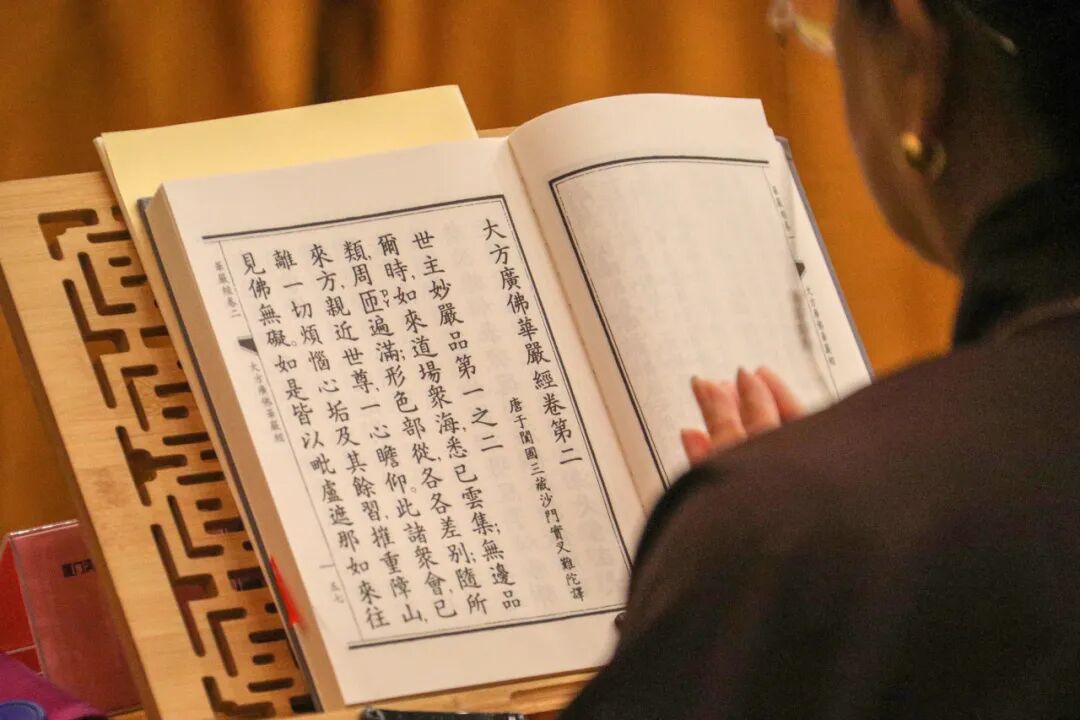 大方廣佛華嚴經
大方廣佛華嚴經卷第二
唐于闐國三藏沙門實叉難陀譯
世主妙嚴品第一之二
爾時,如來道場衆海,悉已雲集;無邊品
類,周匝遍滿;形色部從,各各差別;隨所
來方,親近世尊,一心瞻仰。此諸衆會,已
離一切煩惱心垢及其餘習,摧重障山,
見佛無礙。如是皆以毗盧遮那如來往
華嚴經卷二
大方廣佛華嚴經
一五七
厦门